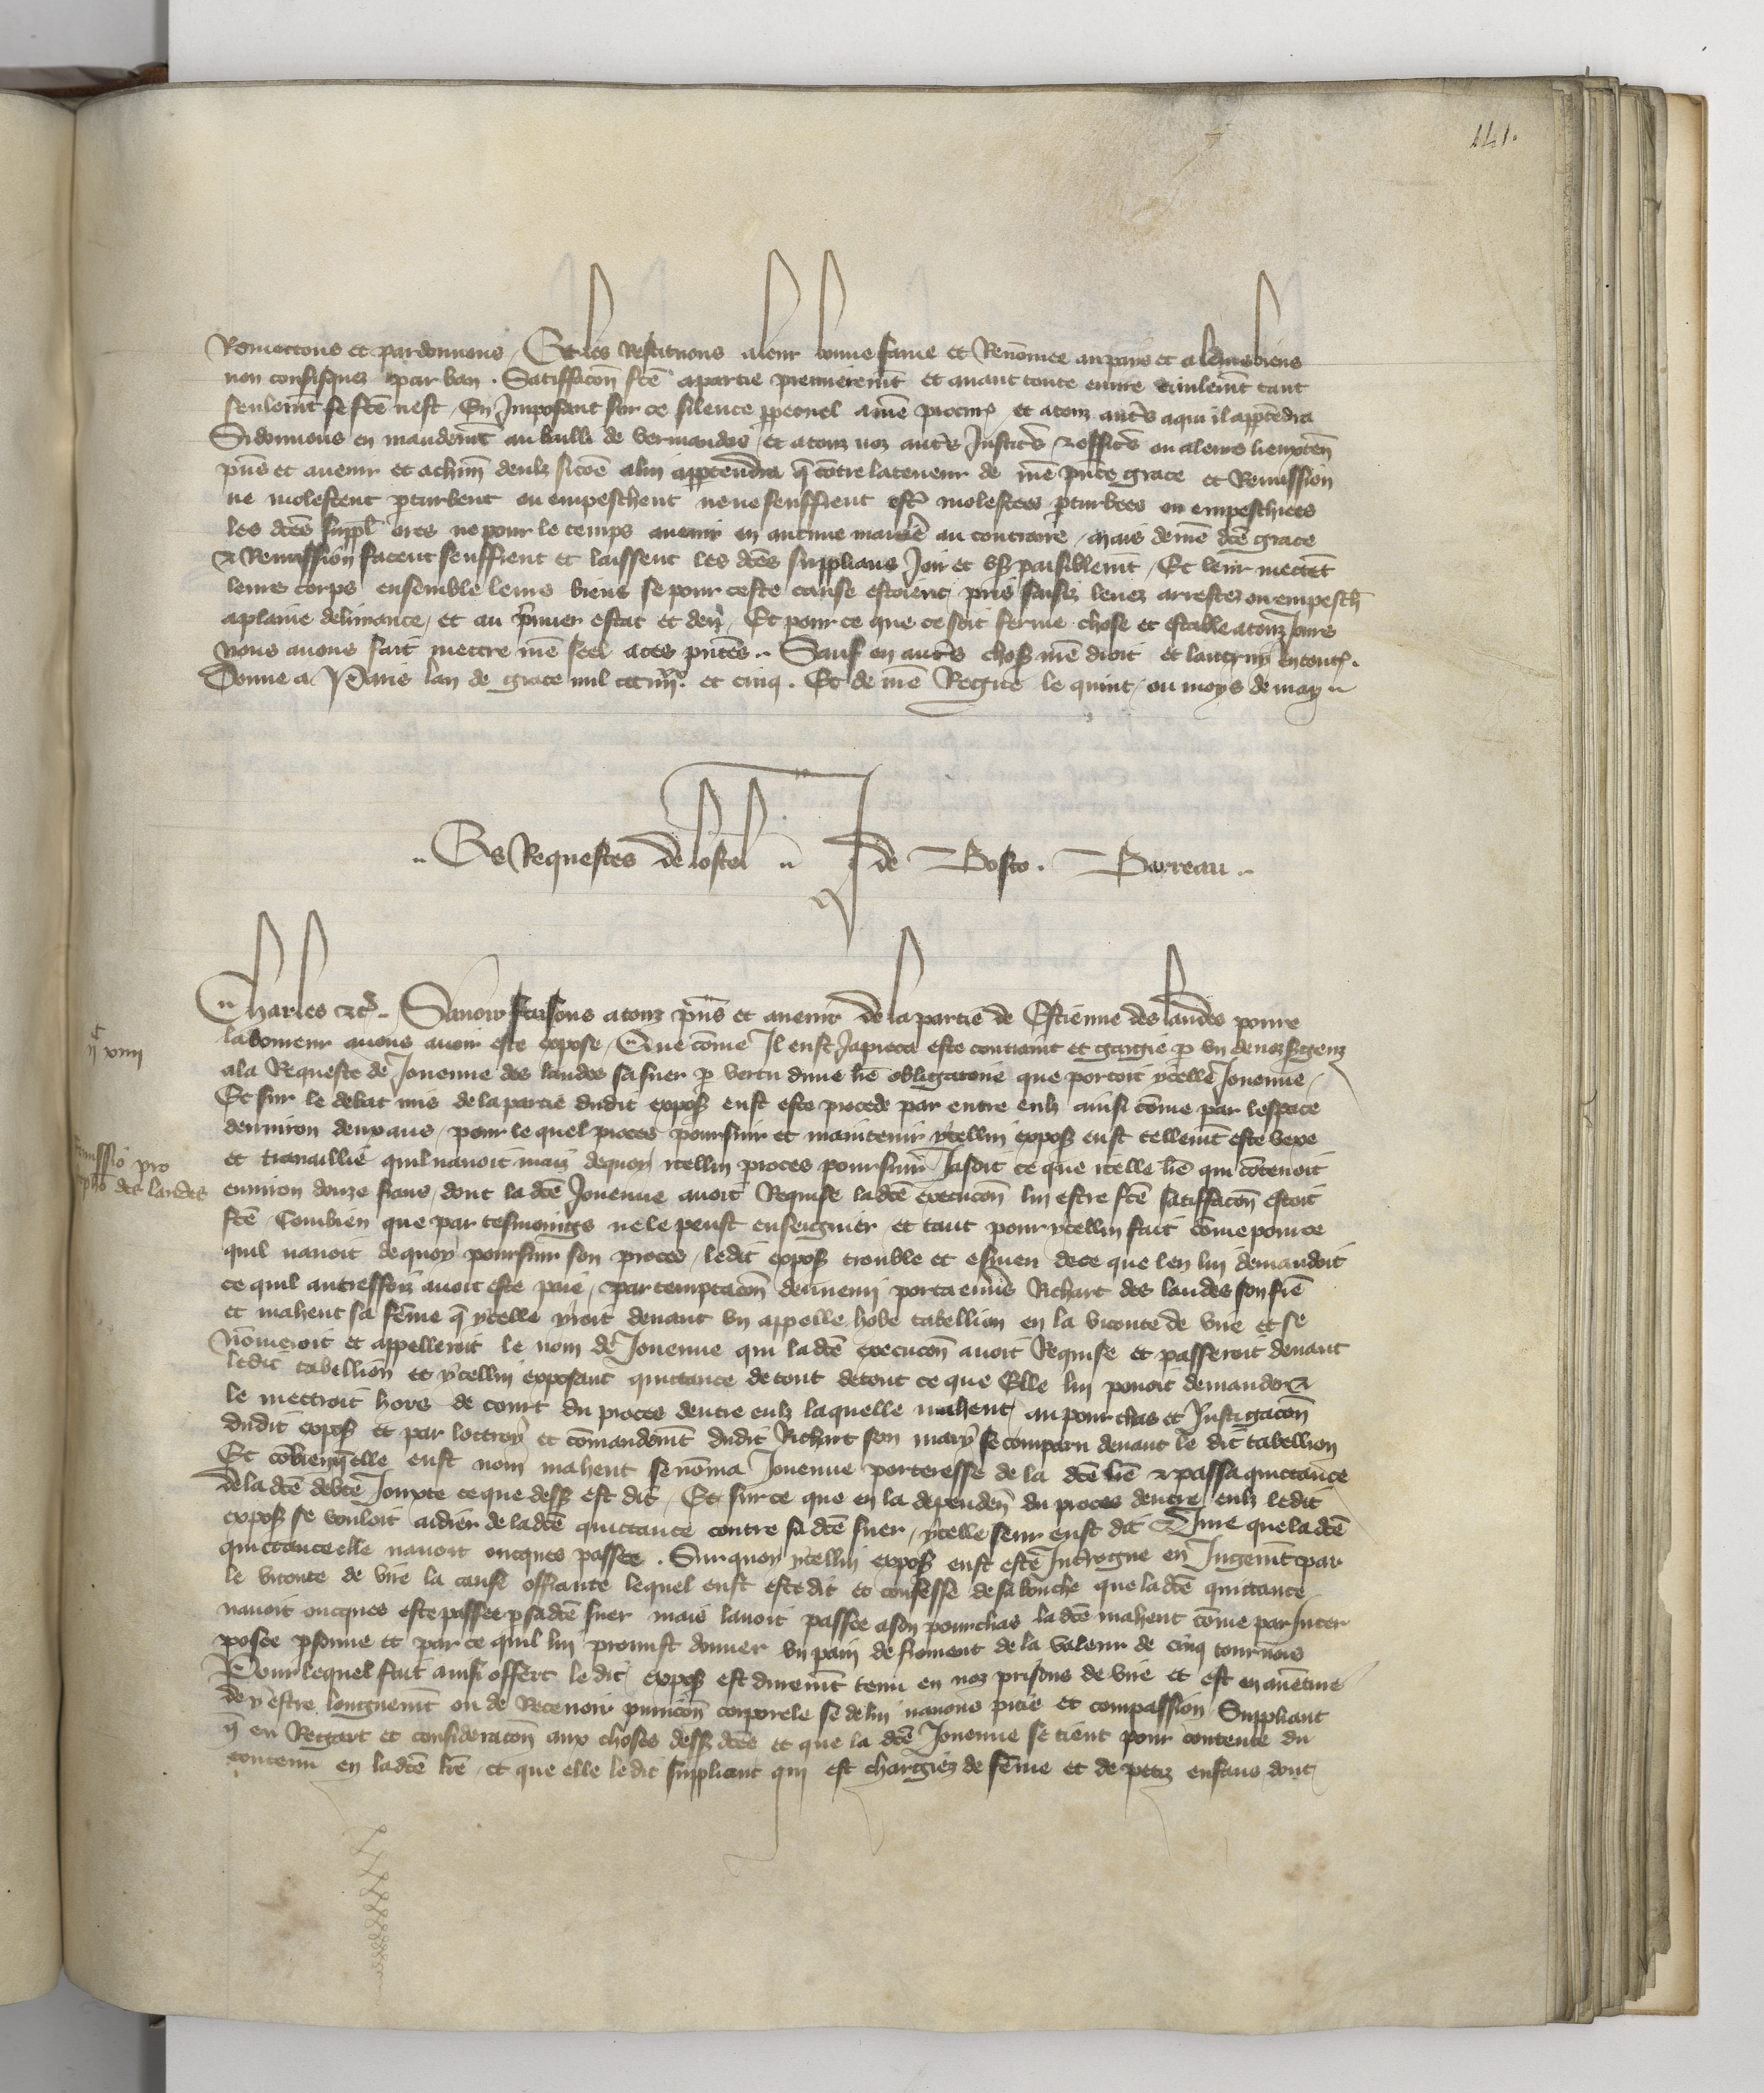 141.
Remettons et pardonnons / Et les Restituons a leur bonne fame et Renōmee au pais et a leurs biens
non confisquez par ban . Satisfacōn fcē a partie premieremt et auant toute euure ciuilemt tant
seulemt se fcē nest / En Imposant sur ce silence ppetuel a nrē procur et a touz autrs a qui il appctēdra
Si donnons en mandemt au bailli de vermandois / et a touz noz autrs Justicrs & officrs ou a leurs lieuxten
pns et auenir et a chun deulz sicōe a lui apptendra q̄ cōtre la teneur de nrē pnte grace et Remission
ne molestent pturbent ou empeschent ne ne seuffrent estr molestees pturbees ou empeschiees
les dcēs suppl ores ne pour le temps auenir en aucune maniēe au contraire / mais de nrē dcē grace
& Remission facent seuffrent et laissent les dcēs supplians Joir et vs paisiblemt / Et leur mectēt
leurs corps ensemble leurs biens se pour ceste cause estoient prins saisiz leuez arrestez ou empesch
a plaine deliurance / et au pmier estat et deu / Et pour ce que ce soit ferme chose et estable a touz Jours
Nous auons fait mettre nrē seel a ces pntēs .. Sauf en autrs chos nrē droit et lautruy en tout .
Donne a Paris lan de grace mil ccciiiixx et cinq . Et de nrē Regne le quint / ou moys de may ..
.. Es Requestes de lostel .. J de Bosco . Barreau ..
Charles &c .. Sauoir faisons a touz pns et auenir de la partie de Estienne des landes poure
laboureur auons auoir este expose / Que cōme Il eust Japieca este contraint et gaigie p vn de noz sgenz
a la Requeste de Jouenne des landes sa suer p vertu dune lrē obligatoire que portoit ycelle Jouenne /
Et sur le debat mis de la partie dudit expos eust este procede par entre eulz ainsi cōme par lespace
denuiron deux ans / pour le quel proces poursuir et maintenir ycellui expos eust tellemt este vexe
et trauaillie quil nauoit mais de quoy icellui proces poursuir Jasoit ce que icelle lrē qui cōtenoit
enuiron douze frans / dont la dcē Jouenne auoit Requise la dcē execucōn lui estre fcē satisfacōn estoit
fcē / Combien que par tesmoings ne le peust enseignier et tant pour ycellui fait cōme pour ce
quil nauoit de quoy poursuir son proces / ledit expos trouble et esmeu de ce que len lui demandoit
ce quil autresfoiz auoit este paie / par temptacōn dennemi porta enurs Richart des landes son frē
et mahent sa fēme q̄ ycelle yroit deuant vn appelle hobe tabellion en la viconte de vire et se
nōmeroit et appelleroit le nom de Jouenne qui la dcē execucōn auoit Requise et passeroit deuant
ledit tabellion et ycellui exposant quittance de tout de tout ce que Elle lui pouoit demander &
le mectroit hors de court du proces dentre eulz laquelle mahent / au pourchas et Instigacōn
dudit expos et par loctroy et cōmandemt dudit Richart son mary se comparu deuant le dit tabellion
Et cōbien q̄lle eust nom mahent se nōma Jouenne porteresse de la dcē lrē & passa quictance
de la dcē debte Jouxte ce que dess est dit / Et sur ce que en la dependen du proces dentre eulz ledit
expos se vouloit aidier de la dcē quittance contre sa dcē suer / ycelle seur eust dit Que que la dcē
quictance elle nauoit oncques passee . Sur quoy ycellui expos eust este Introgue en Jugemt par
le viconte de vire la cause offrante lequel eust este dit et confesse de sa bouche que la dcē quittance
nauoit oncques este passee p sa dcē suer mais lauoit passee a son pourchas la dcē mahent cōme par Inter
posee psonne et par ce quil lui promist donner vn pain de froment de la valeur de cinq tournois
Pour lequel fait ainsi offert le dit expos est duremt tenu en noz prisons de vire et est en auēture
de y estre longuemt ou de Receuoir punicōn corporele se de lui nauons pitie et compassion Suppliant
q̄ en Regart et consideracōn aux choses dess dcēs et que la dcē Jouenne se tient pour contente du
contenu en la dcē lrē / et que elle le dit suppliant qui est chargiez de fēme et de petiz enfans dont
xiiii
Remissio pro
stepho des landes